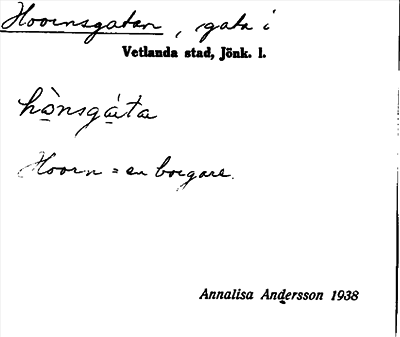 Hoornsgatan, gata i
Vetlanda stad, Jönk. l.
hò̲nsgá̲ta
Hoorn = en borgare.
Annalisa Andersson 1938